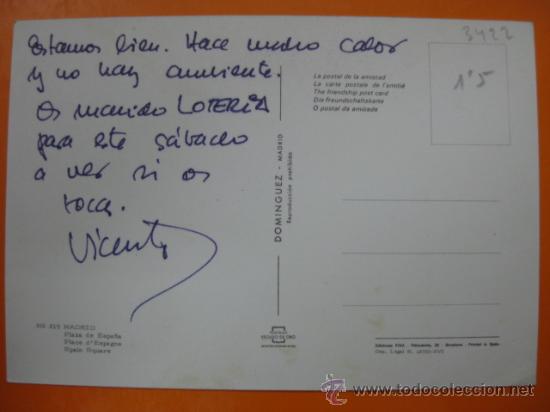 Estamos bien. Hace mucho calor
y no hay ambiente.
Os mando LOTERIA
para este sábado
a ver si os
toca.
Vicente
3422
1'5
La postal de la amistad
La carte postale de l'amitié
The friendship post card
Die freundschaftskarte
O postal da amizade
DOMINGUEZ - MADRID
Reproducción prohibida
MADRID
Plaza de España
Place d'Espagne
Spain Square
ESCUDO DE ORO
Dep. Legal B.
todocoleccion